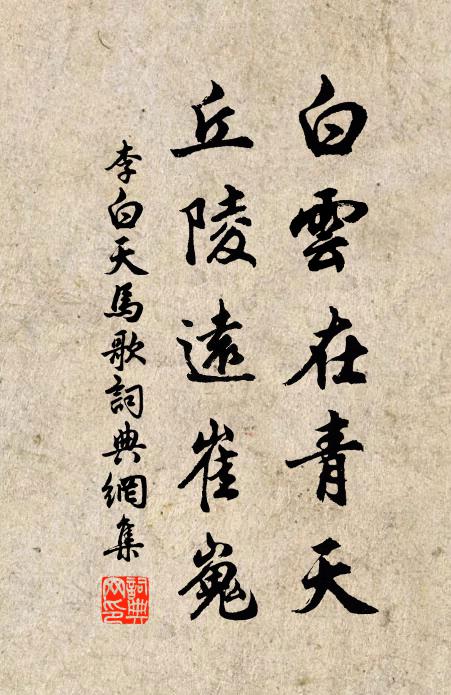 白雲在青天
丘陵遠崔嵬
李白天馬歌詞典網集
詞典网印